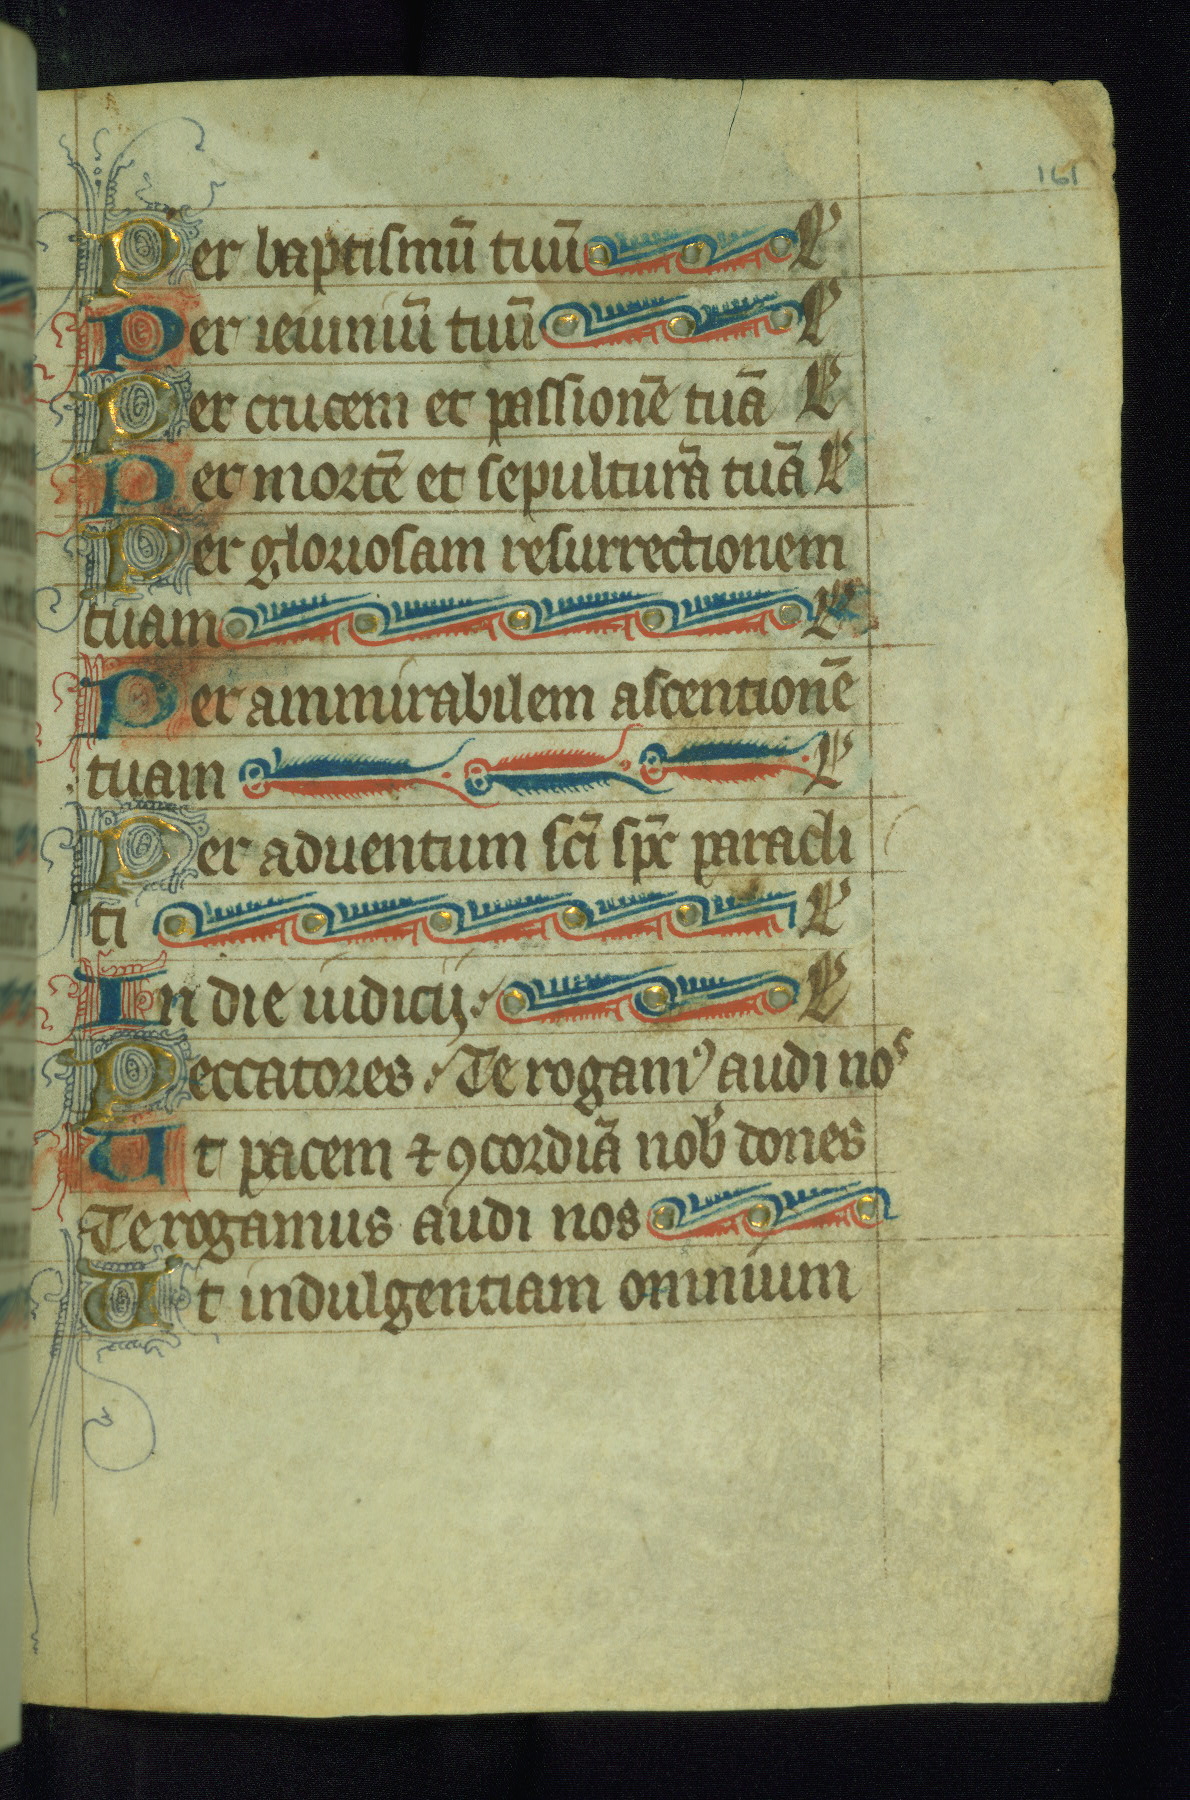 161
Per baptismū tuū L
Per ieiuniū tuū L
Per crucem et passionē tuā L
Per mortē et sepulturā tuā L
Per gloriosam resurrectionem
tuam L
Per ammirabilem ascentionē
tuam L
Per aduentum sc̄i sp̄c paracli
ti L
In die iudicij. L
Peccatores. Te rogamꝰ audi nos
Ut pacem ⁊ ꝯcordiā nob̓ dones
Te rogamus audi nos
Ut indulgentiam omnium